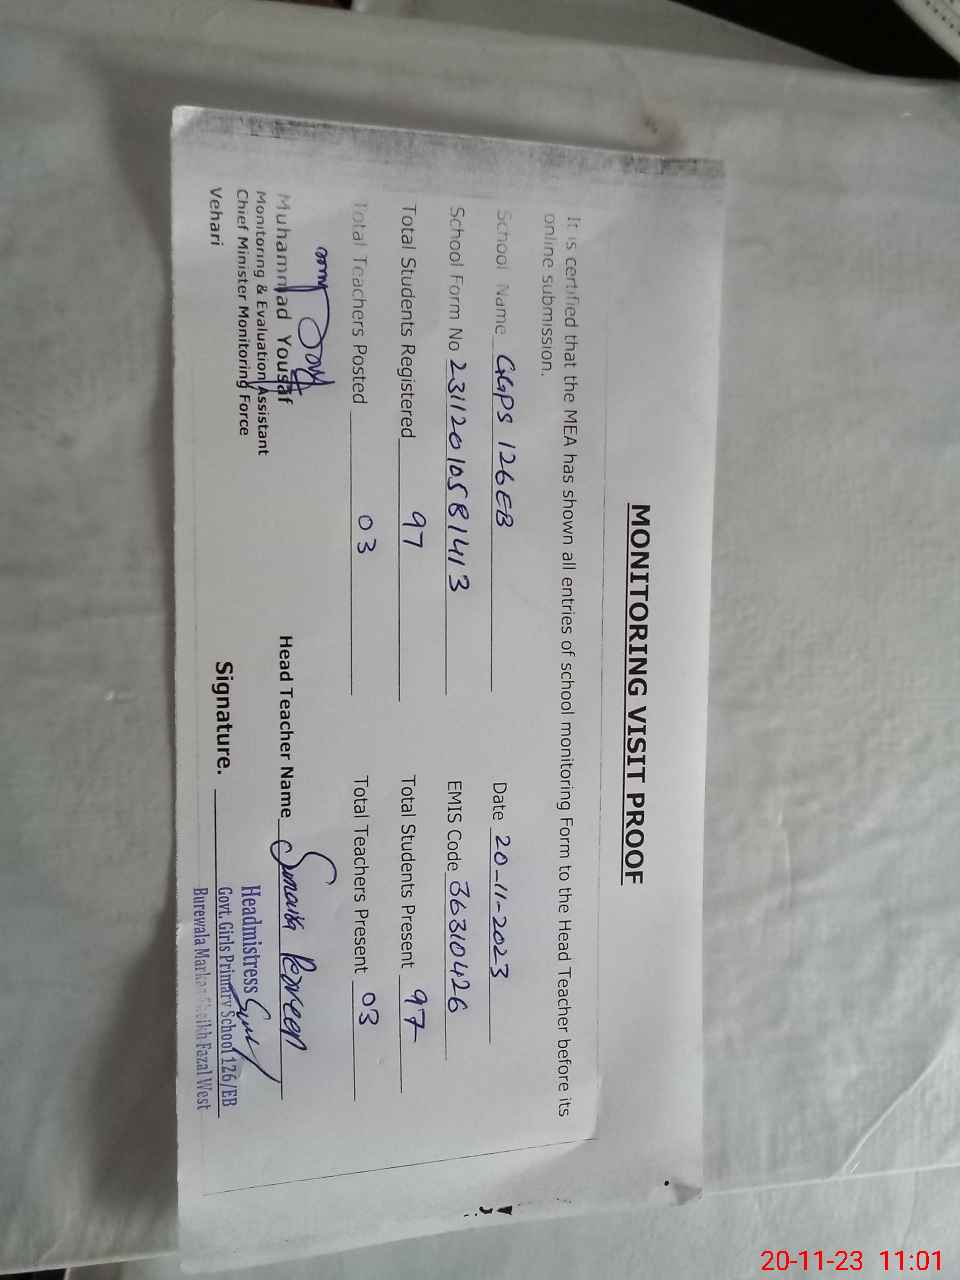 MONITORING VISIT PROOF
It is certified that the MEA has shown all entries of school monitoring Form to the Head Teacher before its
online submission.
School Name GGPS 126EB Date 20-11-2023
School Form No 23112010581413 EMIS Code 36310426
Total Students Registered 97 Total Students Present 97
Total Teachers Posted 03 Total Teachers Present 03
Muhammad Yousaf
Monitoring & Evaluation Assistant
Chief Minister Monitoring Force
Vehari
Head Teacher Name Sumaira Parveen
Signature.
Headmistress
Govt. Girls Primary School 126/EB
Burewala Markaz Sheikh Fazal West
20-11-23 11:01